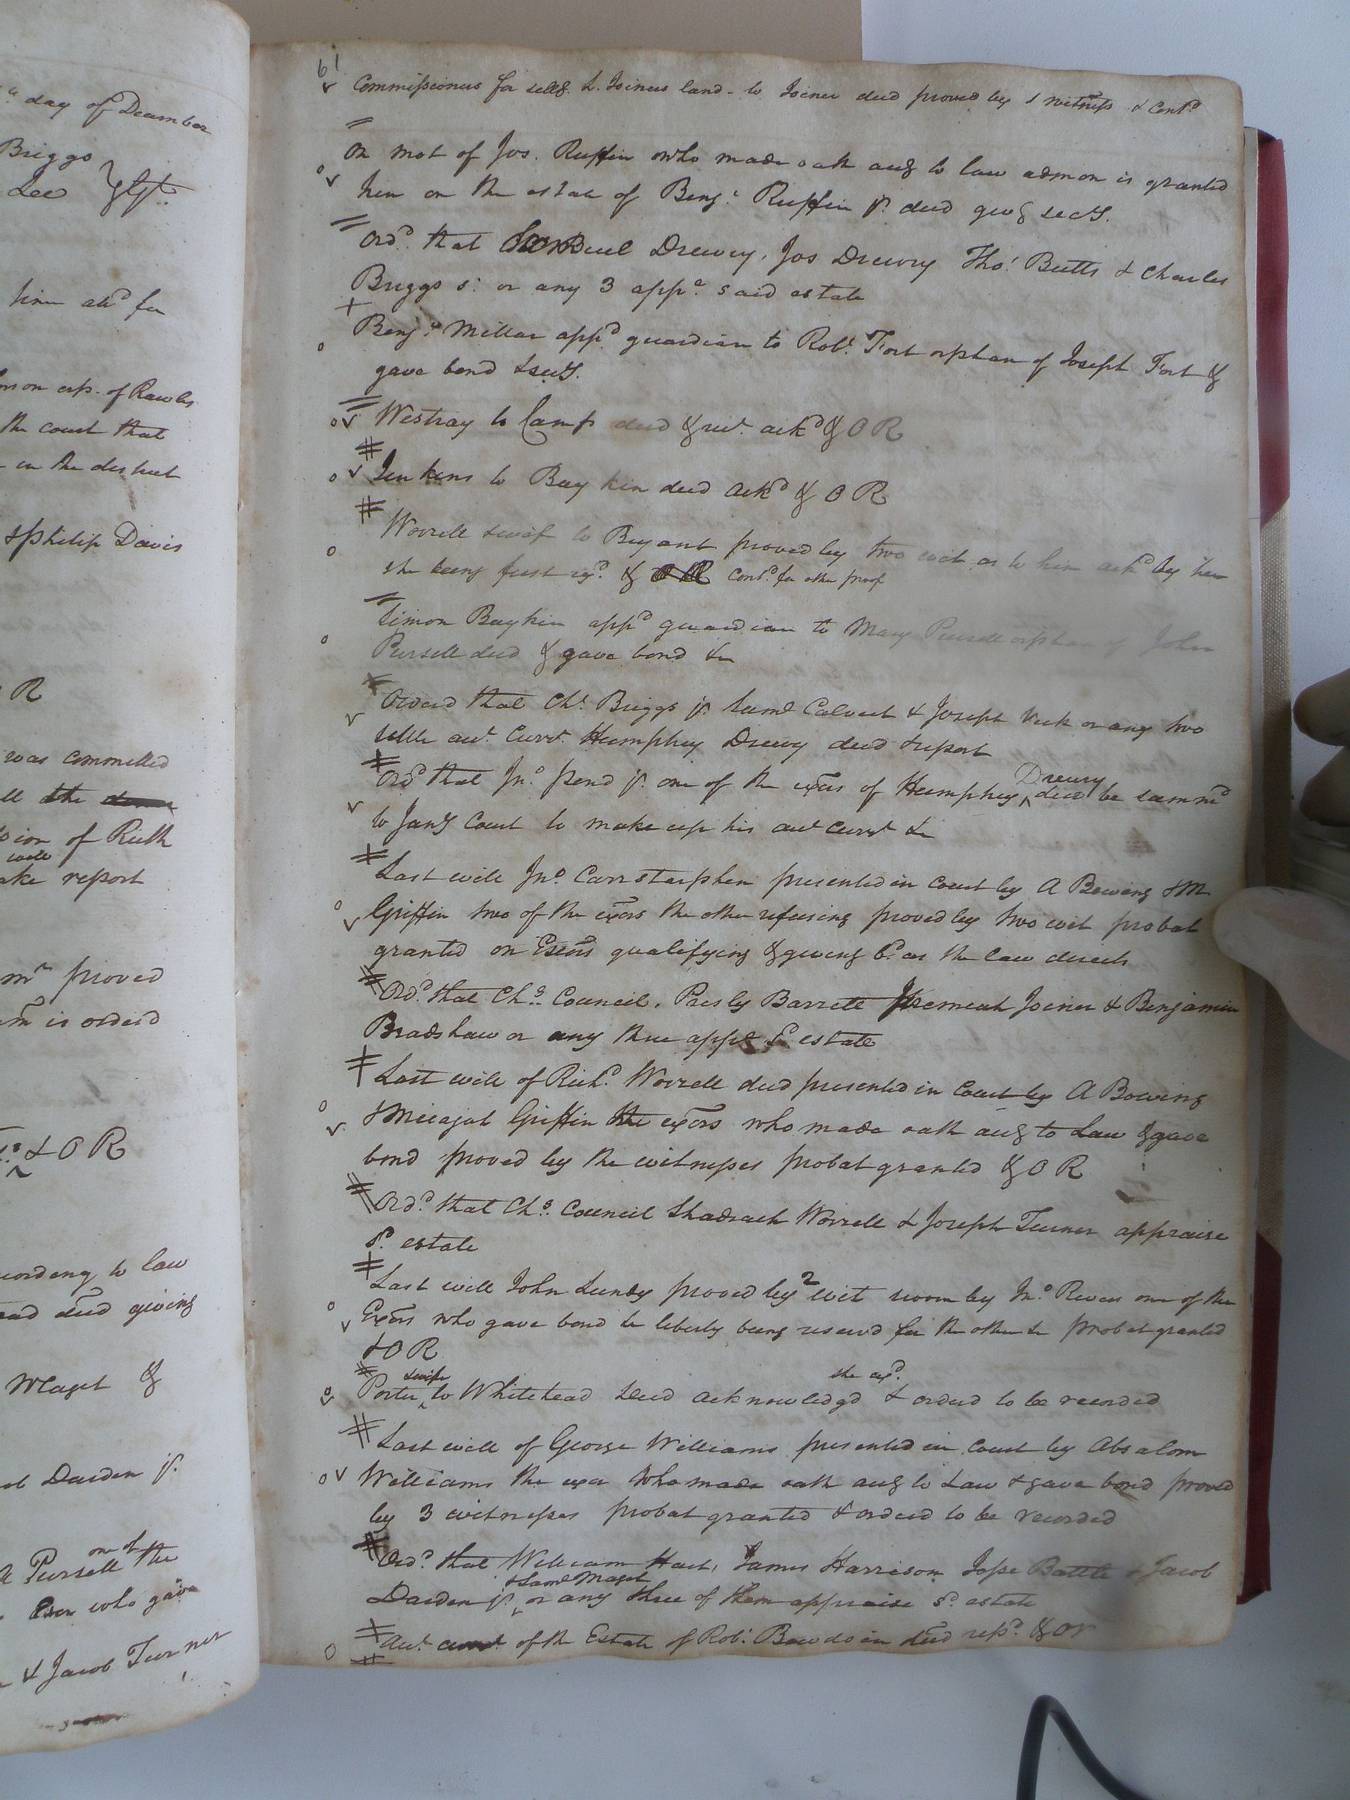 day of December
Briggs
Lee
time ack^d for
of Rawls
the court that
in the district
& Philip Davis
R
was committed
the
of Ruth
will
make report
proved
is orderd
& O R
according to law
decd giving
Maget &
Darden jr.
one of
Pursell the
Exor who gave
& Jacob Turner
61
Commissioners for sellg L. Joiners land - to Joiner deed proved by 1 witness & Cont^d
On mot of Jos. Ruffin who made oath accg to law admon is granted
him on the estate of Benj^a Ruffin jr. decd givg secy.
Ord^d that Samuel Drewry, Jos Drewry Tho^s Butts & Charles
Briggs s^r or any 3 app^e said estate
Benj^a Millar app^d guardian to Rob^t Fort orphan of Joseph Fort &
gave bond & secy.
Westray to Camp deed & rec^t ack^d & O R
Jenkins to Boykin deed Ack^d & O R
Worrell & wife to Bryant proved by two wit as to him ack^d by her
she being first ex^d & O R cont^d for other proof
Simon Boykin app^d guardian to Mary Pursell orphan of John
Pursell decd & gave bond &c
Orderd that Ch^s Briggs jr. Sam^l Calvert & Joseph Vick or any two
settle acc^t Curr^t Humphrey Drewry decd & report
Drewry
Ord^d that Jn^o Pond jr. one of the exõrs of Humphrey decd be summ^d
to Jan^y Court to make up his acc^t curr^t &c
Last will Jn^o Carrstarphen presented in court by A Bowing & M
Griffin two of the exõrs the other refusing proved by two wit probat
granted on Exõrs qualifying & giving b^d as the law directs
Ord^d that Ch^s Council, Presly Barrett Jeremiah Joiner & Benjamin
Bradshaw or any three app^e s^d estate
Last will of Rich^d Worrell decd presented in Court by A Bowing
& Micajah Griffin the exõrs who made oath accg to Law & gave
bond proved by the witnesses probat granted & O R
Ord^d that Ch^s Council Shadrach Worrell & Joseph Turner appraise
s^d estate
Last will John Lundy proved by 2 wit sworn by Jn^o Rives one of the
Exõrs who gave bond &c liberty being reservd for the other &c probat granted
& O R
& wife she ex^d.
Porter to Whitehead Deed acknowledgd & orderd to be recorded
Last will of George Williams presented in court by Absalom
Williams the exor who made oath accg to Law & gave bond proved
by 3 witnesses probat granted & orderd to be recorded
Ord^d that William Hart, James Harrison Jesse Battle & Jacob
& Sam^l Maget
Darden jr. or any three of them appraise s^d estate
Acc^t curr^t of the Estate of Rob^t Bowdoin decd ret^d & or